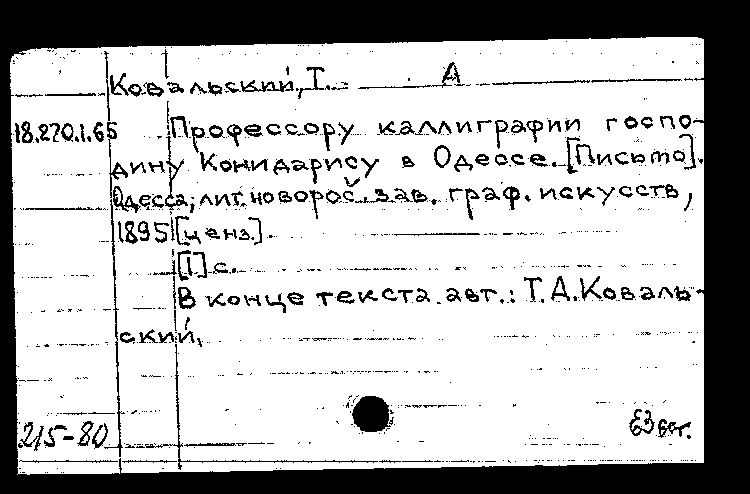 Ковальский, Т. А
18.270.1.65 Профессору каллиграфии госпо-
дину Конидарису в Одессе. [Письмо].
Одесса, лит. новорос. зав. граф. искусств,
1895 [ценз.].
[1] с.
В конце текста авт.: Т.А.Коваль-
ский.
215-80